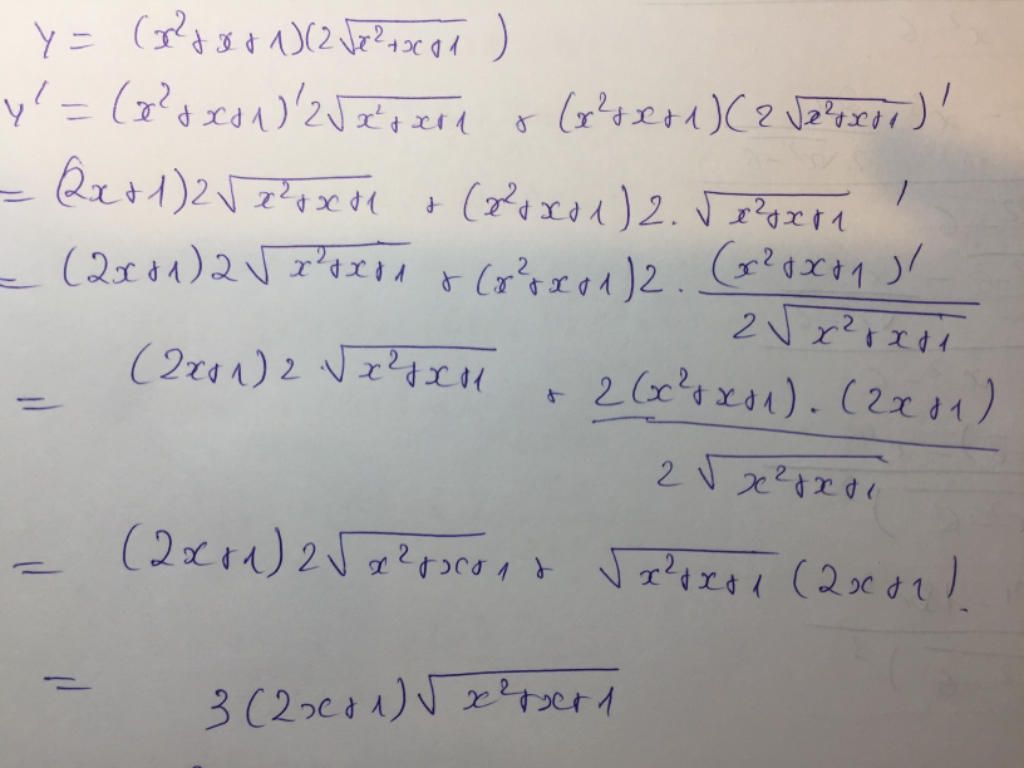 y = (x²+x+1)(2√(x²+x+1))
y' = (x²+x+1)'2√(x²+x+1) + (x²+x+1)(2√(x²+x+1))'
= (2x+1)2√(x²+x+1) + (x²+x+1)2.√(x²+x+1)'
= (2x+1)2√(x²+x+1) + (x²+x+1)2.(x²+x+1)'/(2√(x²+x+1))
= (2x+1)2√(x²+x+1) + 2(x²+x+1).(2x+1)/(2√(x²+x+1))
= (2x+1)2√(x²+x+1) + √(x²+x+1)(2x+1).
= 3(2x+1)√(x²+x+1)